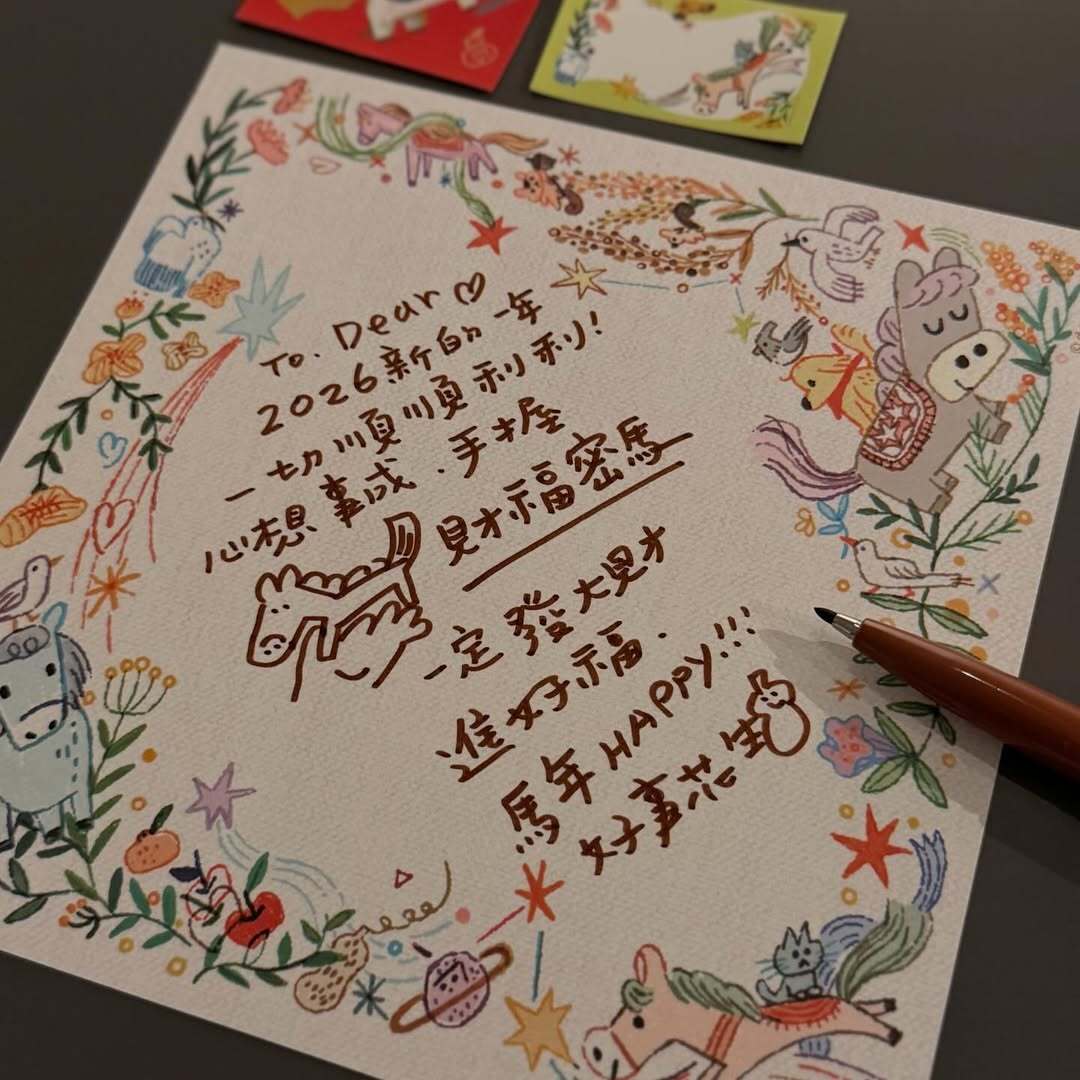 To. Dear ♡
2026新的一年
一切順順利利!
心想事成.手握
財福密馬
一定發大財
進好福.
馬年HAPPY!!!
好事花生